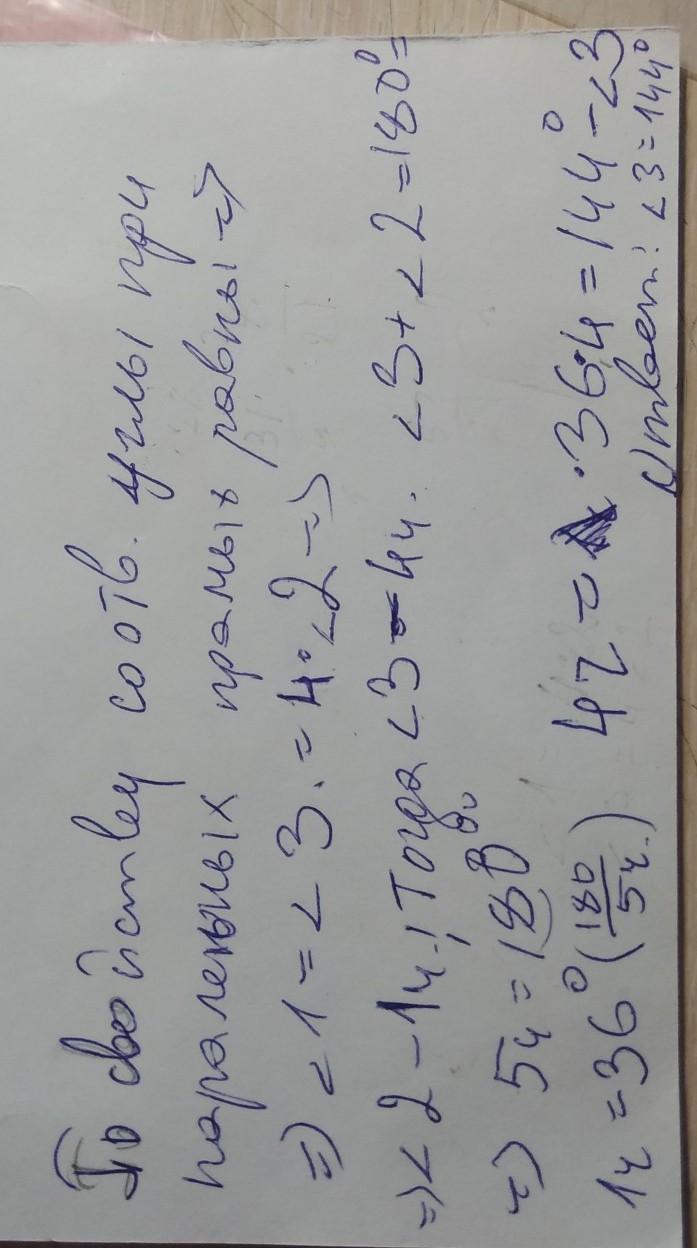 По свойству соотв. углы при
паралельных прямых равны =>
=> <1 = <3. = 4·<2 =>
=> <2 - 1ч.; Тогда <3 - 4ч. <3 + <2 = 180° =
=> 5ч = 180°
1ч = 36° (180/5ч.) 4ч = 36·4 = 144° - <3
Ответ: <3 = 144°